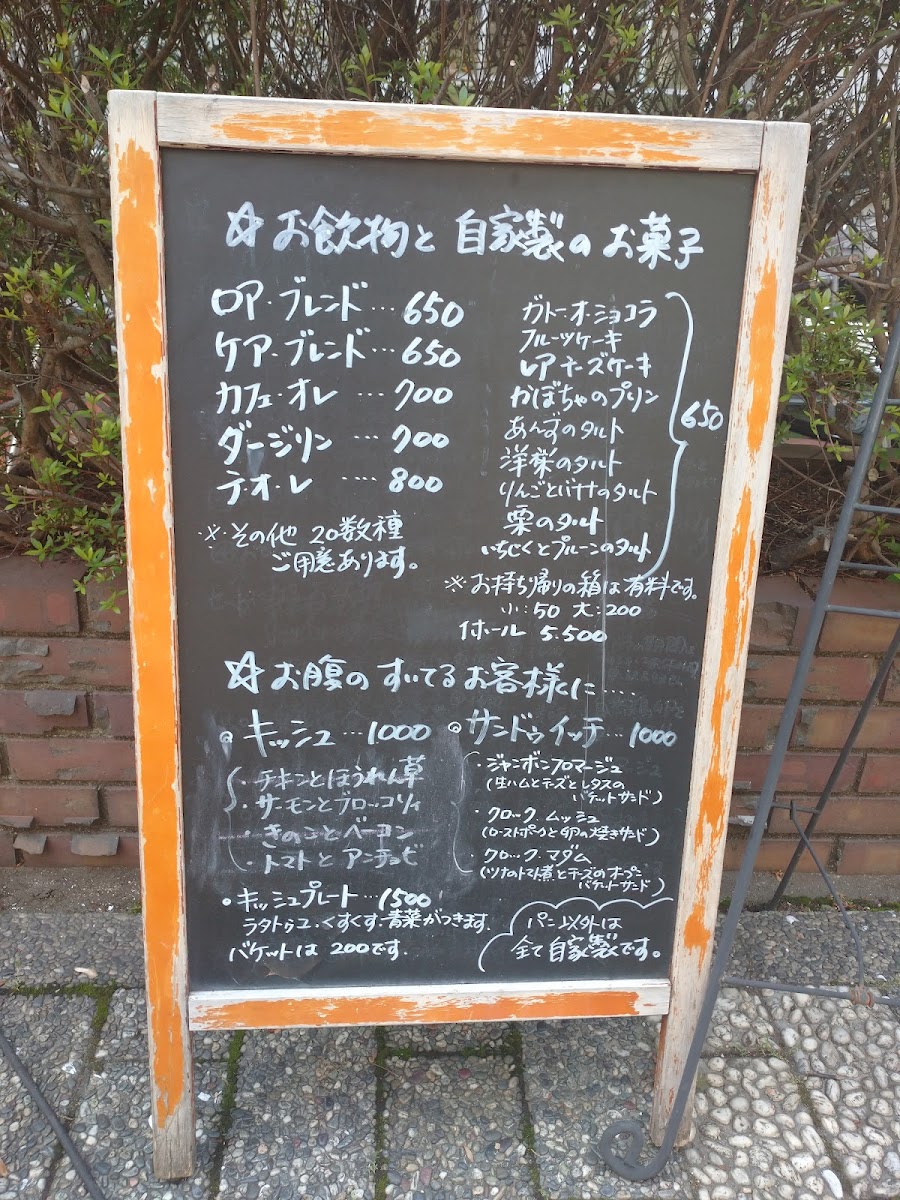 ☆お飲物と自家製のお菓子
ロア・ブレンド…650
ケア・ブレンド…650
カフェ・オレ…700
ダージリン…700
テ・オ・レ…・800
※その他 20数種
ご用意あります。
ガトーオ・ショコラ
フルーツケーキ
レアチーズケーキ
かぼちゃのプリン
あんずのタルト
洋梨のタルト
りんごとバナナのタルト
栗のタルト
いちじくとプルーンのタルト
650
※お持ち帰りの箱は有料です。
小:50 大:200
1ホール 5.500
☆お腹のすいてるお客様に……
◎キッシュ…1000
・チキンとほうれん草
・サーモンとブロッコリィ
・きのことベーコン
・トマトとアンチョビ
・キッシュプレート…1500
ラタトゥユ・くすくす・青菜がつきます。
バケットは200です。
◎サンドゥイッチ…1000
・ジャンボンフロマージュ
(生ハムとチーズとレタスの
バケットサンド)
・クロック・ムッシュ
(ローストポークと卵の焼きサンド)
・クロック・マダム
(ツナのトマト煮とチーズのオープン
バケットサンド)
パン以外は
全て自家製です。